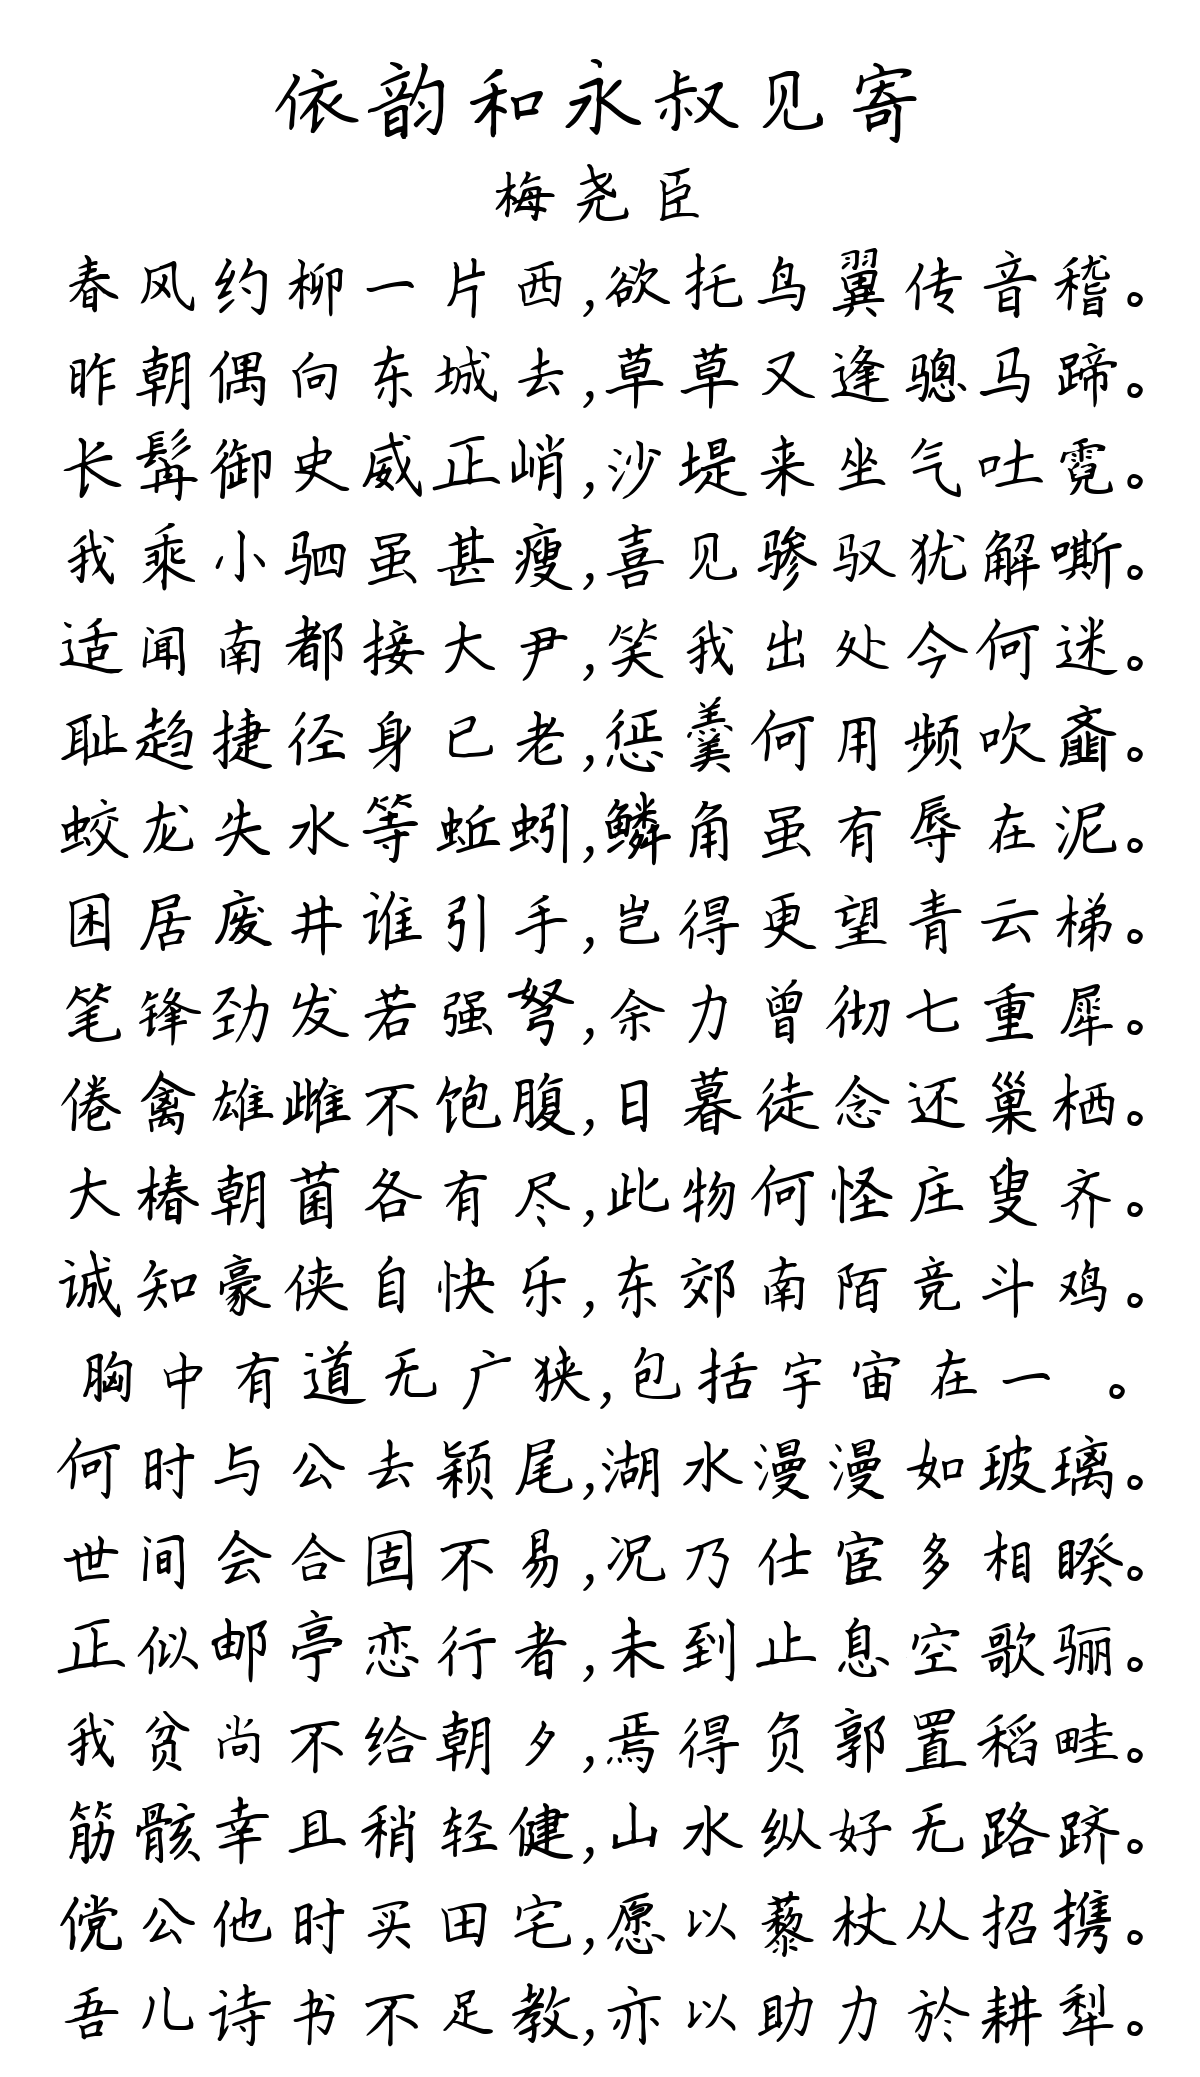 依韵和永叔见寄
梅尧臣
春风约柳一片西,欲托鸟翼传音稽。
昨朝偶向东城去,草草又逢骢马蹄。
长髯御史威正峭,沙堤来坐气吐霓。
我乘小驷虽甚瘦,喜见骖驭犹解嘶。
适闻南都接大尹,笑我出处今何迷。
耻趋捷径身已老,惩羹何用频吹齑。
蛟龙失水等蚯蚓,鳞角虽有辱在泥。
困居废井谁引手,岂得更望青云梯。
笔锋劲发若强弩,余力曾彻七重犀。
倦禽雄雌不饱腹,日暮徒念还巢栖。
大椿朝菌各有尽,此物何怪庄叟齐。
诚知豪侠自快乐,东郊南陌竞斗鸡。
胸中有道无广狭,包括宇宙在一 。
何时与公去颖尾,湖水漫漫如玻璃。
世间会合固不易,况乃仕宦多相睽。
正似邮亭恋行者,未到止息空歌骊。
我贫尚不给朝夕,焉得负郭置稻畦。
筋骸幸且稍轻健,山水纵好无路跻。
傥公他时买田宅,愿以藜杖从招携。
吾儿诗书不足教,亦以助力於耕犁。